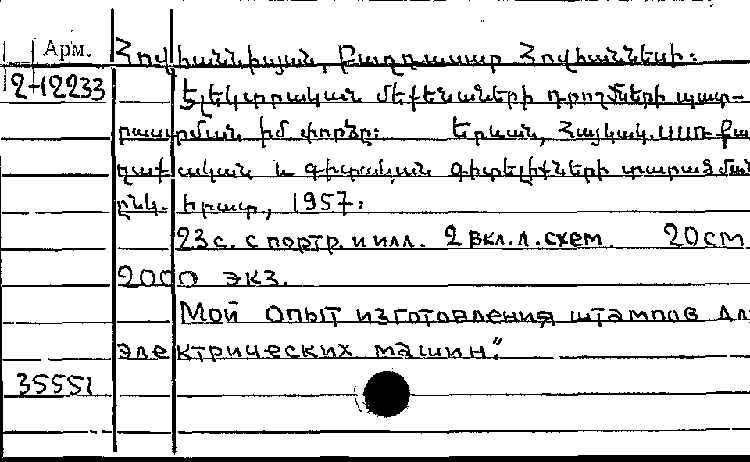 Арм. Հովհաննիսյան, Բաղդասար Հովհաննեսի:
2-12233 Էլեկտրական մեքենաների դրոշմների պատ-
րաստման իմ փորձը: Երևան, Հայկակ. ՍՍՌ քա
ղաքական և գիտական գիտելիքների տարածման
ընկ. հրատ., 1957:
23 с. с портр. и илл. 2 вкл. л. схем. 20 см
2000 экз.
"Мой опыт изготовления штампов дл
электрических машин."
35551